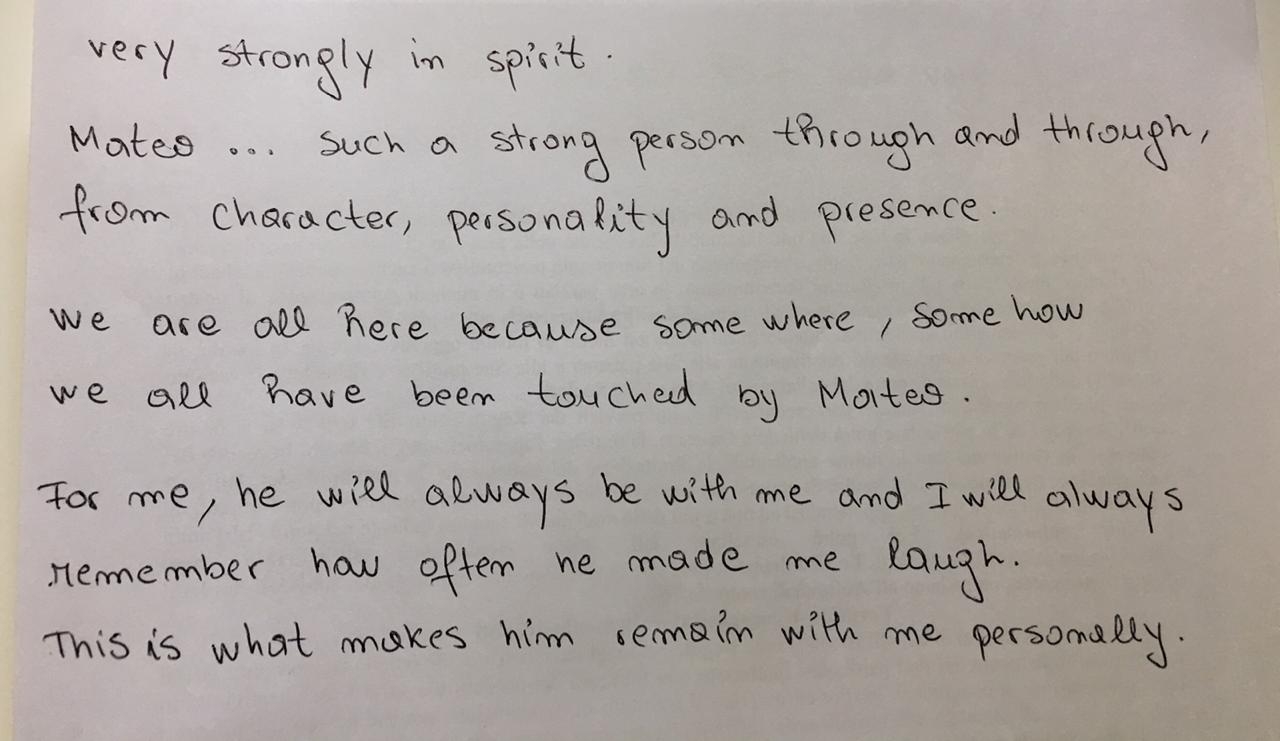 very strongly in spirit.
Mateo ... such a strong person through and through,
from character, personality and presence.
We are all here because some where, some how
we all have been touched by Mateo.
For me, he will always be with me and I will always
remember how often he made me laugh.
This is what makes him remain with me personally.